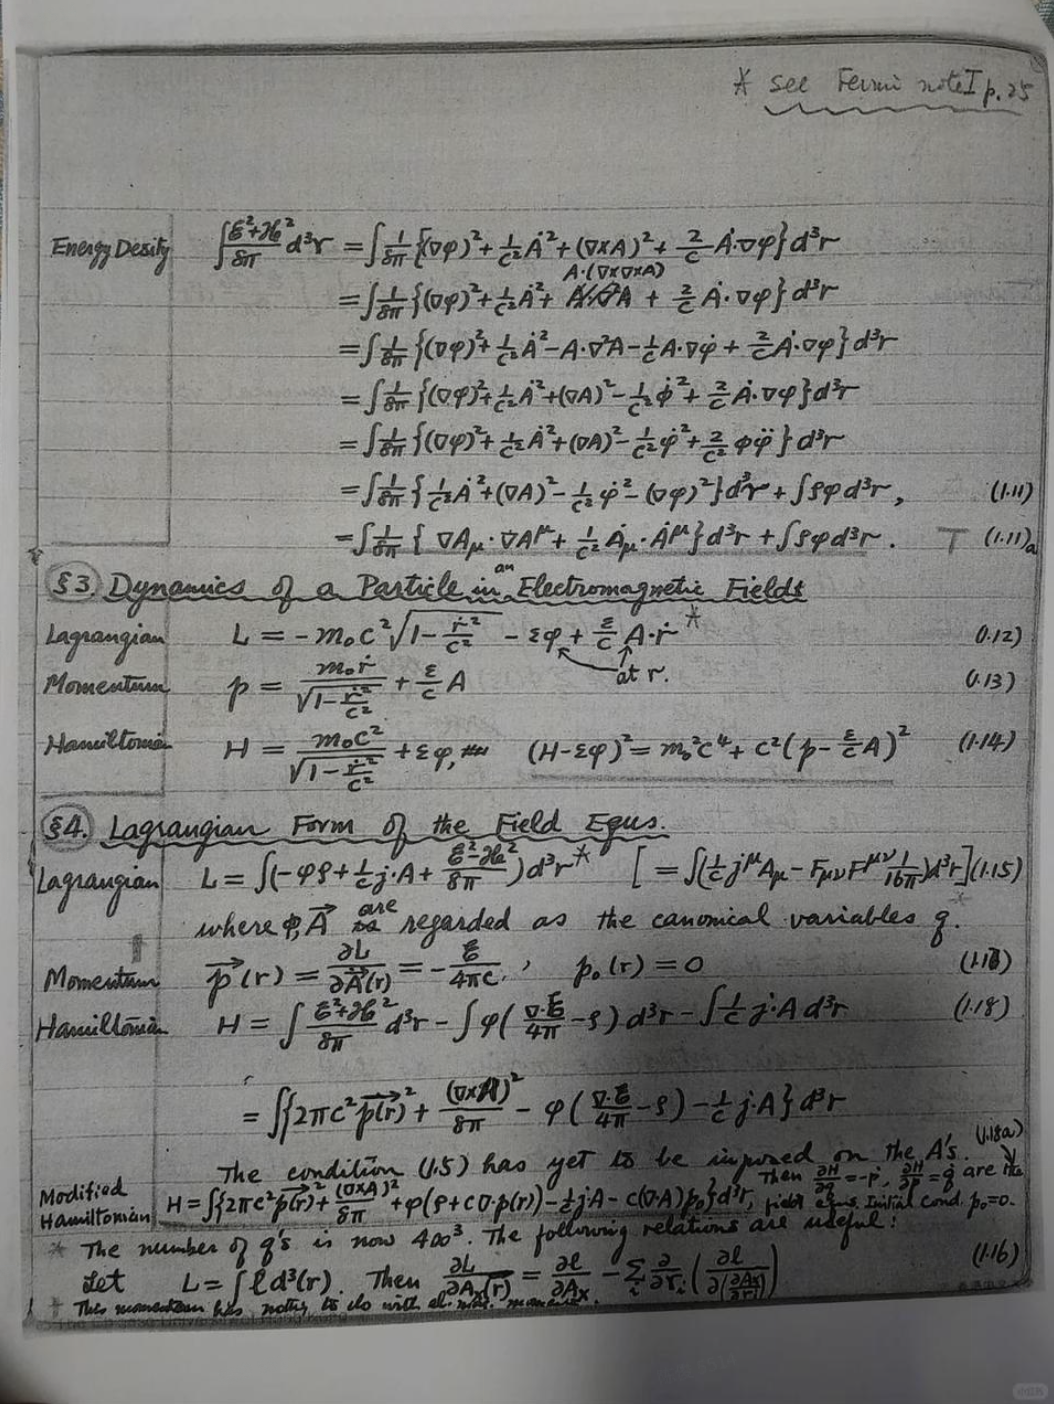 * see Fermi note I p. 25
Energy Desity ∫(ℰ²+ℋ²)/8π d³r = ∫1/8π {(∇φ)² + 1/c² Ȧ² + (∇×A)² + 2/c Ȧ·∇φ} d³r
A·(∇×∇×A)
= ∫1/8π {(∇φ)² + 1/c² Ȧ² + + 2/c Ȧ·∇φ} d³r
= ∫1/8π {(∇φ)² + 1/c² Ȧ² − A·∇²A − 1/c A·∇φ̇ + 2/c Ȧ·∇φ} d³r
= ∫1/8π {(∇φ)² + 1/c² Ȧ² + (∇A)² − 1/c² φ̇² + 2/c Ȧ·∇φ} d³r
= ∫1/8π {(∇φ)² + 1/c² Ȧ² + (∇A)² − 1/c² φ̇² + 2/c² φφ̈} d³r
= ∫1/8π {1/c² Ȧ² + (∇A)² − 1/c² φ̇² − (∇φ)²} d³r + ∫ρφ d³r, (1.11)
= ∫1/8π {∇A_μ·∇A^μ + 1/c² Ȧ_μ·Ȧ^μ} d³r + ∫ρφ d³r. (1.11)a
§3. Dynamics of a Particle in an Electromagnetic Fields
Lagrangian L = −m₀c² √(1−ṙ²/c²) − εφ + ε/c A·ṙ * (1.12)
at r.
Momentum p = m₀ṙ/√(1−ṙ²/c²) + ε/c A (1.13)
Hamiltonian H = m₀c²/√(1−ṙ²/c²) + εφ, (H−εφ)² = m₀²c⁴ + c²(p − ε/c A)² (1.14)
§4. Lagrangian Form of the Field Equs.
Lagrangian L = ∫(−φρ + 1/c j·A + (ℰ²−ℋ²)/8π) d³r * [= ∫(1/c j^μ A_μ − F_μν F^μν 1/16π) d³r] (1.15)
where φ, A⃗ are regarded as the canonical variables q.
Momentum p⃗(r) = ∂L/∂A⃗̇(r) = −ℰ/4πc, p₀(r) = 0
Hamiltonian H = ∫(ℰ²+ℋ²)/8π d³r − ∫φ(∇·ℰ/4π − ρ) d³r − ∫1/c j·A d³r (1.18)
= ∫{2πc² p⃗(r)² + (∇×A)²/8π − φ(∇·ℰ/4π − ρ) − 1/c j·A} d³r
The condition (1.5) has yet to be imposed on the A's. (1.18a)
Then ∂H/∂q = −ṗ, ∂H/∂p = q̇ are the
Modified Hamiltonian H = ∫{2πc² p⃗(r)² + (∇×A)²/8π + φ(ρ + c∇·p(r)) − 1/c j·A − c(∇·A)p₀} d³r, field equs. Initial cond. p₀=0.
* The number of q's is now 4∞³. The following relations are useful:
Let L = ∫ℓ d³(r). Then ∂L/∂A_x(r) = ∂ℓ/∂A_x − Σ_i ∂/∂r_i (∂ℓ/∂(∂A_x/∂r_i)) (1.16)
This momentum has nothing to do with